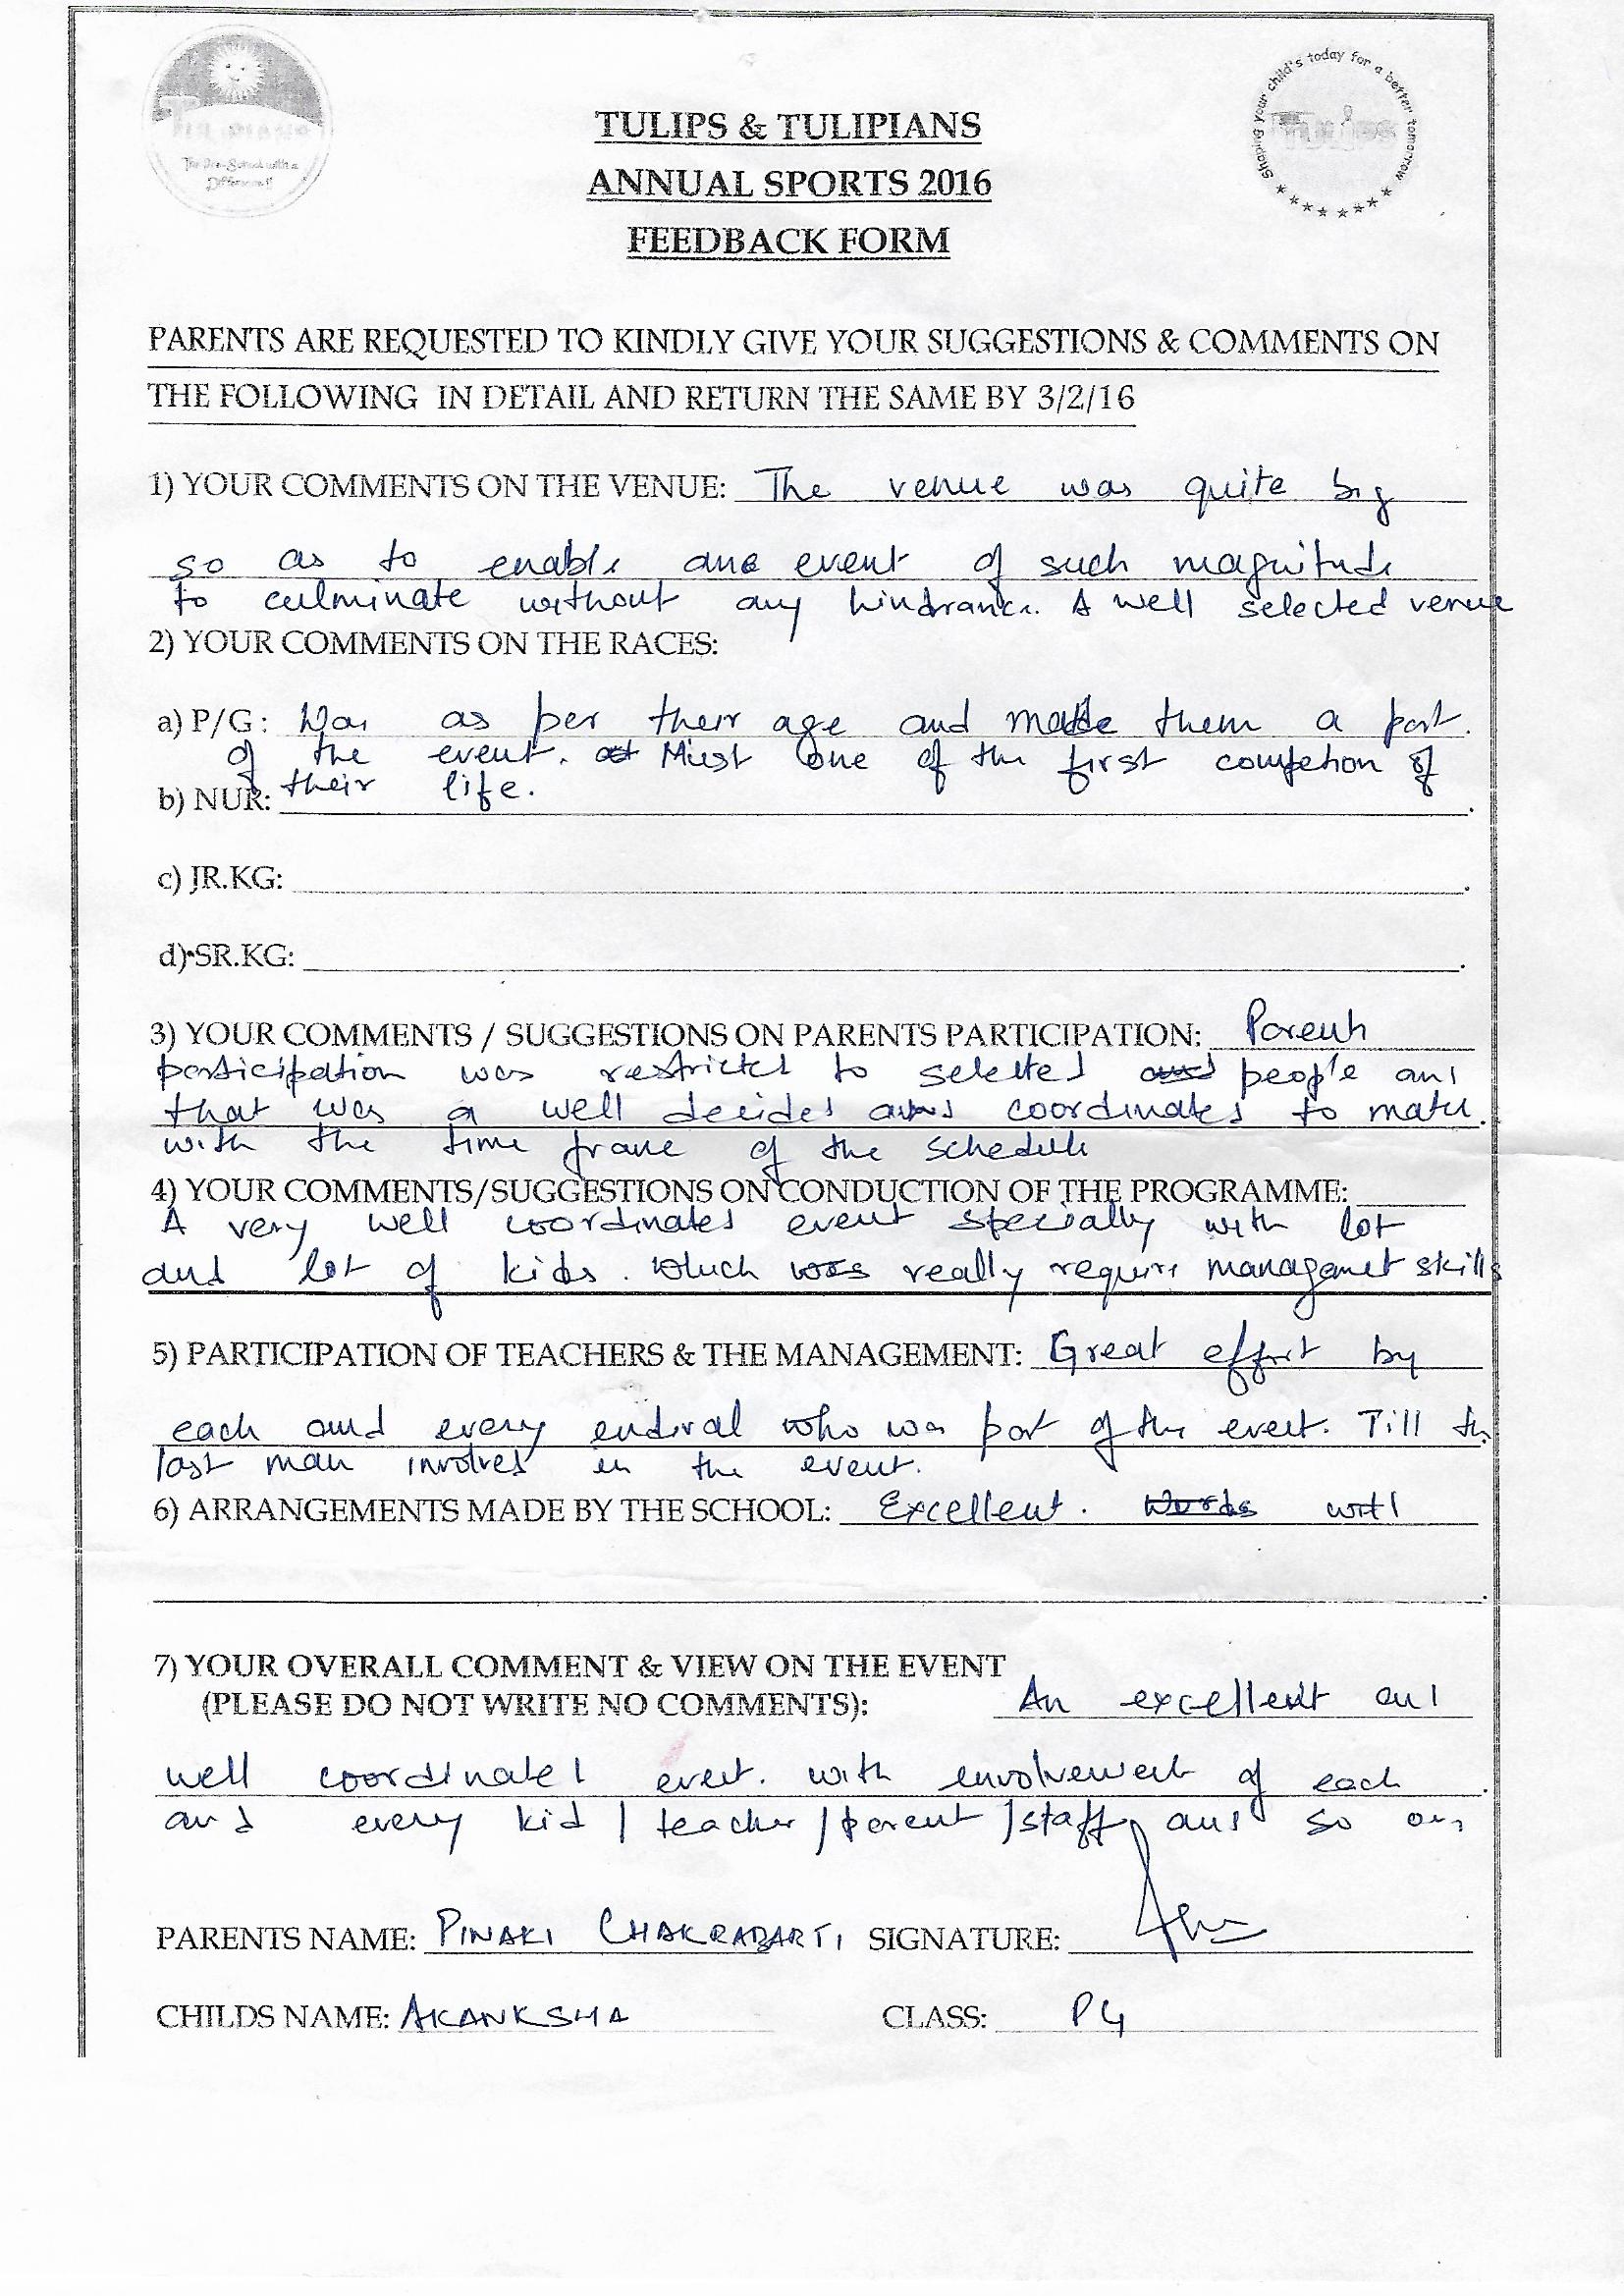 The Pre-School with a
Difference!!
Shaping your child's today for a better tomorrow
Tulips
TULIPS & TULIPIANS
ANNUAL SPORTS 2016
FEEDBACK FORM
PARENTS ARE REQUESTED TO KINDLY GIVE YOUR SUGGESTIONS & COMMENTS ON
THE FOLLOWING IN DETAIL AND RETURN THE SAME BY 3/2/16
1) YOUR COMMENTS ON THE VENUE: The venue was quite big
so as to enable event of such magnitude
to culminate without any hindrance. A well selected venue
2) YOUR COMMENTS ON THE RACES:
a) P/G: Was as per their age and made them a part.
of the event. Must one of the first competion of
their life.
b) NUR:
c) JR.KG:
d) SR.KG:
3) YOUR COMMENTS / SUGGESTIONS ON PARENTS PARTICIPATION: Parents
participation was restricted to selected people and
that was a well decided and coordinated to match
with the time frame of the schedule
4) YOUR COMMENTS/SUGGESTIONS ON CONDUCTION OF THE PROGRAMME:
A very well coordinated event specially with lot
and lot of kids. which really require managemet skills
5) PARTICIPATION OF TEACHERS & THE MANAGEMENT: Great effort by
each and every who was part of the event. Till the
last man involved in the event.
6) ARRANGEMENTS MADE BY THE SCHOOL: Excellent.
7) YOUR OVERALL COMMENT & VIEW ON THE EVENT
(PLEASE DO NOT WRITE NO COMMENTS): An excellent and
well coordinated event. with envolvement of each
and every kid / teacher / parent / staff and so on
PARENTS NAME: PINAKI CHAKRABARTI SIGNATURE:
CHILDS NAME: AKANKSHA CLASS: PG